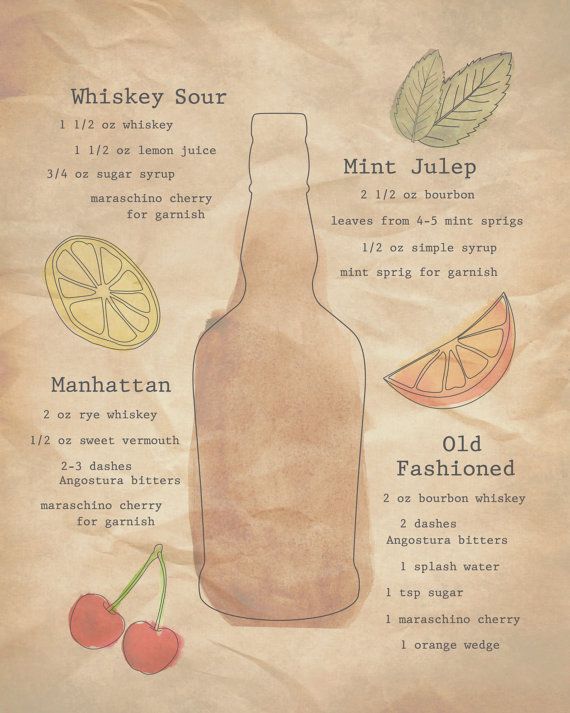 Whiskey Sour
1 1/2 oz whiskey
1 1/2 oz lemon juice
3/4 oz sugar syrup
maraschino cherry
for garnish
Mint Julep
2 1/2 oz bourbon
leaves from 4-5 mint sprigs
1/2 oz simple syrup
mint sprig for garnish
Manhattan
2 oz rye whiskey
1/2 oz sweet vermouth
2-3 dashes
Angostura bitters
maraschino cherry
for garnish
Old
Fashioned
2 oz bourbon whiskey
2 dashes
Angostura bitters
1 splash water
1 tsp sugar
1 maraschino cherry
1 orange wedge